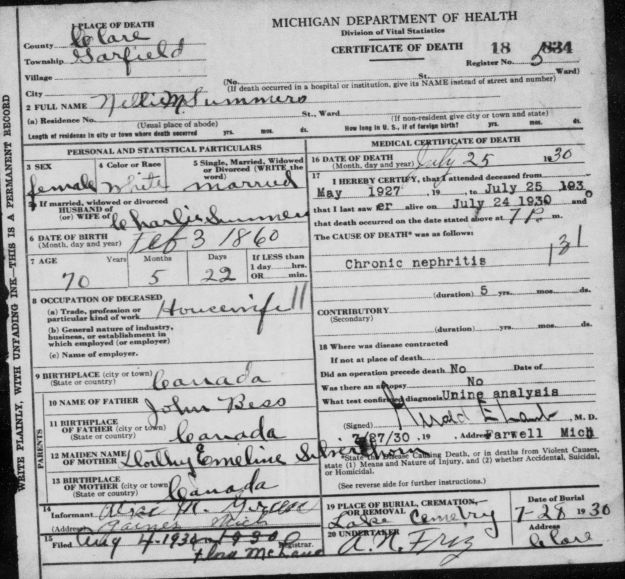 MICHIGAN DEPARTMENT OF HEALTH
Division of Vital Statistics
CERTIFICATE OF DEATH
18 834
Register No. 5
1 PLACE OF DEATH
County Clare
Township Garfield
Village
City
(No. St. Ward)
(If death occurred in a hospital or institution, give its NAME instead of street and number)
2 FULL NAME Nellie M. Summers
(a) Residence No. St., Ward
(Usual place of abode) (If non-resident give city or town and state)
Length of residence in city or town where death occurred yrs. mos. ds. How long in U. S., if of foreign birth? yrs. mos. ds.
PERSONAL AND STATISTICAL PARTICULARS
3 SEX 4 Color or Race 5 Single, Married, Widowed or Divorced (WRITE the word)
female White married
If married, widowed or divorced
HUSBAND of
(or) WIFE of Charlie Summers
6 DATE OF BIRTH
(Month, day and year) Feb 3 1860
7 AGE Years Months Days If LESS than
1 day hrs.
OR min.
70 5 22
8 OCCUPATION OF DECEASED
(a) Trade, profession or
particular kind of work Housewife
(b) General nature of industry,
business, or establishment in
which employed (or employer)
(c) Name of employer.
9 BIRTHPLACE (city or town)
(State or country) Canada
PARENTS
10 NAME OF FATHER John Bess
11 BIRTHPLACE
OF FATHER (city or town)
(State or country) Canada
12 MAIDEN NAME
OF MOTHER Dorthy Emeline
13 BIRTHPLACE
OF MOTHER (city or town)
(State or country) Canada
14
Informant
(Address) Gaines Mich
15
Filed Aug 4-1930 1930
Registrar.
MEDICAL CERTIFICATE OF DEATH
16 DATE OF DEATH
(Month, day and year) July 25 1930
17
I HEREBY CERTIFY, that I attended deceased from
May 1927, 19 , to July 25 1930
that I last saw er alive on July 24 1930 and
that death occurred on the date stated above at 7 P. m.
The CAUSE OF DEATH* was as follows:
131
Chronic nephritis
(duration) 5 yrs. mos. ds.
CONTRIBUTORY
(Secondary)
(duration) yrs. mos. ds.
18 Where was disease contracted
If not at place of death
Did an operation precede death No Date of
Was there an autopsy No
What test confirmed diagnosis Unine analysis
(Signed) , M. D.
/27/30 , 19 , Address Farwell Mich
*State the Disease Causing Death, or in deaths from Violent Causes,
state (1) Means and Nature of Injury, and (2) whether Accidental, Suicidal,
or Homicidal.
(See reverse side for further instructions.)
19 PLACE OF BURIAL, CREMATION,
OR REMOVAL Date of Burial
Lake Cemetry 7-28 1930
20 UNDERTAKER Address
Clare
WRITE PLAINLY, WITH UNFADING INK—THIS IS A PERMANENT RECORD